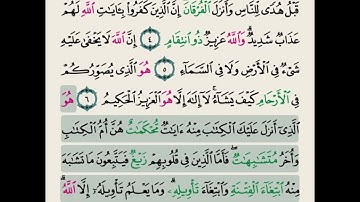 قَبْلُ هُدًى لِّلنَّاسِ وَأَنزَلَ ٱلْفُرْقَانَ إِنَّ ٱلَّذِينَ كَفَرُوا۟ بِـَٔايَـٰتِ ٱللَّهِ لَهُمْ
عَذَابٌ شَدِيدٌ وَٱللَّهُ عَزِيزٌ ذُو ٱنتِقَامٍ ٤ إِنَّ ٱللَّهَ لَا يَخْفَىٰ عَلَيْهِ
شَىْءٌ فِى ٱلْأَرْضِ وَلَا فِى ٱلسَّمَآءِ ٥ هُوَ ٱلَّذِى يُصَوِّرُكُمْ
فِى ٱلْأَرْحَامِ كَيْفَ يَشَآءُ لَآ إِلَـٰهَ إِلَّا هُوَ ٱلْعَزِيزُ ٱلْحَكِيمُ ٦ هُوَ
ٱلَّذِىٓ أَنزَلَ عَلَيْكَ ٱلْكِتَـٰبَ مِنْهُ ءَايَـٰتٌ مُّحْكَمَـٰتٌ هُنَّ أُمُّ ٱلْكِتَـٰبِ
وَأُخَرُ مُتَشَـٰبِهَـٰتٌ فَأَمَّا ٱلَّذِينَ فِى قُلُوبِهِمْ زَيْغٌ فَيَتَّبِعُونَ مَا تَشَـٰبَهَ
مِنْهُ ٱبْتِغَآءَ ٱلْفِتْنَةِ وَٱبْتِغَآءَ تَأْوِيلِهِۦ وَمَا يَعْلَمُ تَأْوِيلَهُۥٓ إِلَّا ٱللَّهُ